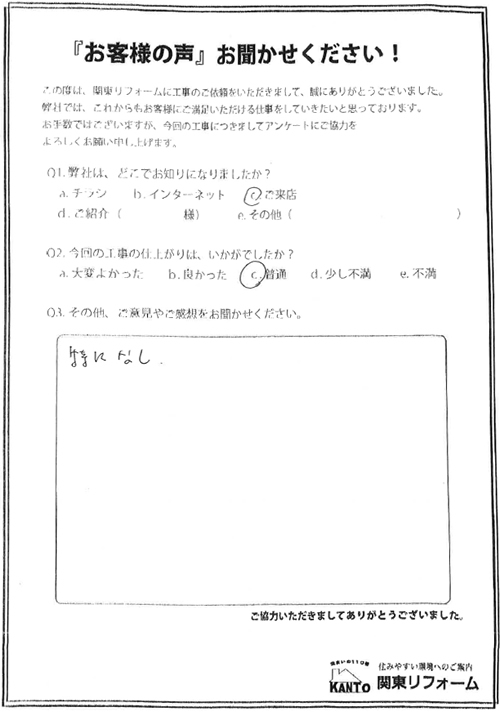 『お客様の声』お聞かせください！
この度は、関東リフォームに工事のご依頼をいただきまして、誠にありがとうございました。
弊社では、これからもお客様にご満足いただける仕事をしていきたいと思っております。
お手数ではございますが、今回の工事につきましてアンケートにご協力を
よろしくお願い申し上げます。
Q1. 弊社は、どこでお知りになりましたか？
a. チラシ b. インターネット c. ご来店
d. ご紹介（ 様） e. その他（ ）
Q2. 今回の工事の仕上がりは、いかがでしたか？
a. 大変よかった b. 良かった c. 普通 d. 少し不満 e. 不満
Q3. その他、ご意見やご感想をお聞かせください。
特になし.
ご協力いただきましてありがとうございました。
住まいの110番
KANTO
住みやすい環境へのご案内
関東リフォーム